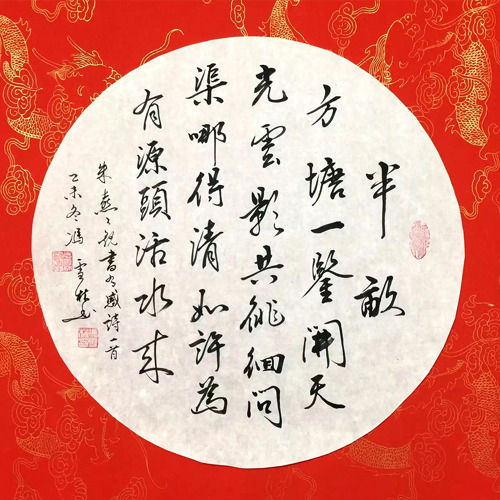 半畝
方塘一鑒開天
光雲影共徘徊問
渠哪得清如許為
有源頭活水來
朱熹觀書有感詩一首
乙未冬馮雪